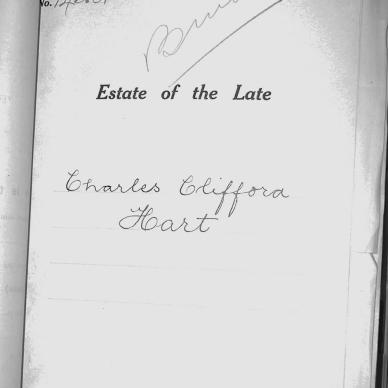 No.
Estate of the Late
Charles Clifford
Hart